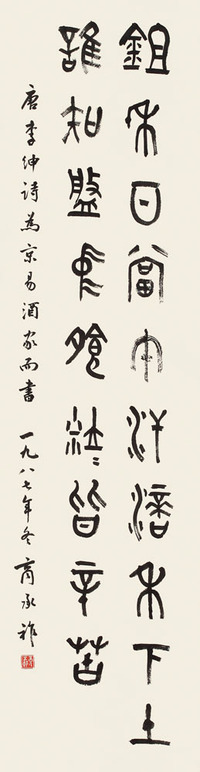 鉏禾日當午汗滴禾下土
誰知盤中飧粒〻皆辛苦
唐李紳詩為京易酒家而書 一九八七年冬 商承祚